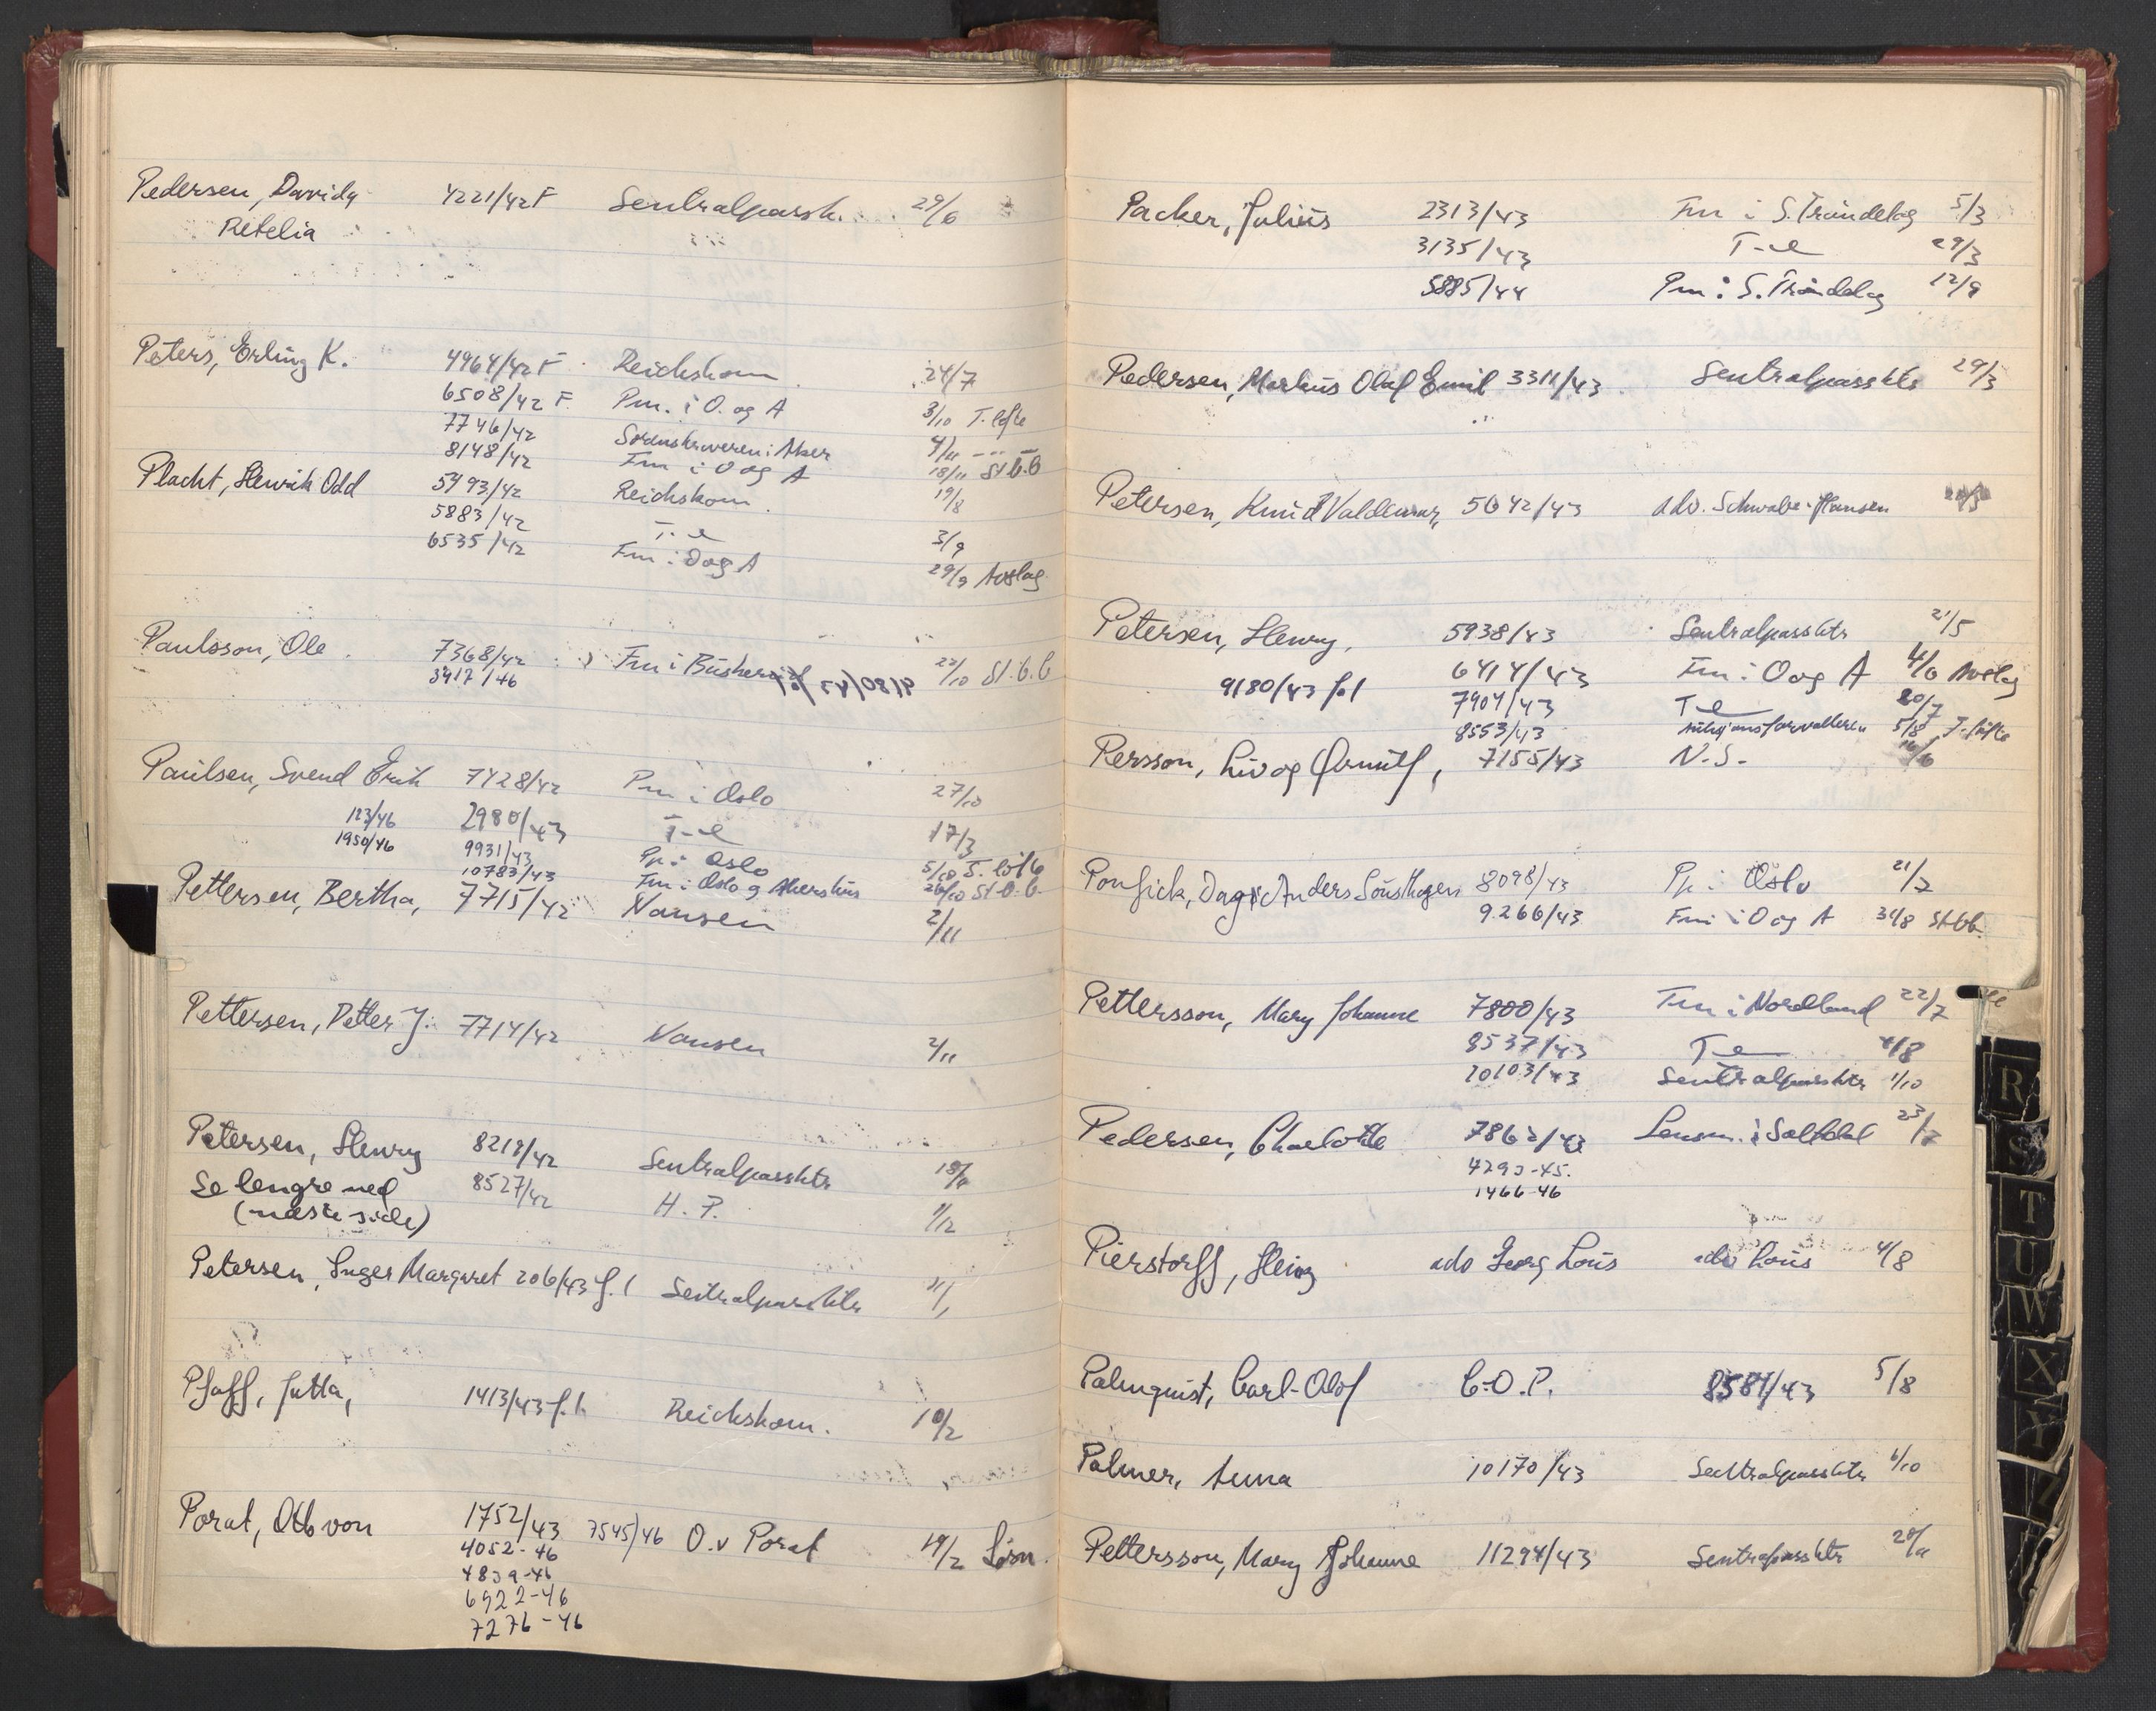 Pedersen, Davida 4221/42 F Sentralpassk. 29/6
Retelia
Peters, Erling K. 4964/42 F Reichskom 24/7
6508/42 F. Pm. i O. og A 3/10 T. løfte
7746/42 Sorenskriveren i Aker 4/11 - - -
8148/42 Fm i O og A 18/11 St.b.b
Placht, Henrik Odd 5493/42 Reichskom. 19/8
5883/42 T-e 3/9
6535/42 Fm i O og A 29/9 Avslag
Paulsson, Ole 7368/42 Fm i Buskerud 22/10 St.b.b
3912/46
Paulsen, Svend Erik 7428/42 Pm i Oslo 27/10
123/46 2980/43 T-e 17/3
1950/46 9931/43 Pp i Oslo 5/10 T. løfte
10783/43 Fm i Oslo og Akershus 26/10 St.b.b.
Pettersen, Bertha, 7715/42 Nansen 2/11
Pettersen, Petter J. 7714/42 Nansen 2/11
Petersen, Henry 8218/42 Sentralpassktr 18/11
Se lengre ned 8527/42 H. P. 1/12
(næste side)
Petersen, Inger Margaret 206/43 f.l Sentralpassktr 11/1
Pfaff, Jutta, 1413/43 f.l. Reichskom. 10/2
Porat, Otto von 1752/43 7545/46 O. v Porat 19/2 Løsn.
4052-46
4839-46
6922-46
7276-46
Packer, Julius 2313/43 Fm i S. Trøndelag 5/3
3135/43 T-e 29/3
5885/44 Pm i S. Trøndelag 12/9
Pedersen, Markus Olaf Emil 3311/43 Sentralpassktr 29/3
Petersen, Knud Valdemar, 5642/43 adv. Schwabe-Hansen
Petersen, Henry, 5938/43 Sentralpassktr 21/5
6414/43 Fm i O og A 4/6 Avslag
9180/43 f.l 7904/43 T e 20/7
8553/43 suksjonsforvalteren 5/8 T. løfte
Persson, Liv og Ørnulf, 7155/43 N.S. 16/6
Ponsick, Dag Anders Lous Mogens 8098/43 Pp i Oslo 21/7
9266/43 Fm i O og A 31/8 St.bb.
Pettersson, Mary Johanne 7800/43 Fm i Nordland 22/7
8537/43 T e 4/8
10103/43 Sentralpassktr 1/10
Pedersen, Charlotte 7862/43 Lensm. i Saltdal 23/7
4293-45.
1466-46
Pierstorff, Heinz adv Georg Lous adv Lous 4/8
Palmquist, Carl-Olof C.-O.P. 8581/43 5/8
Palmer, Anna 10170/43 Sentralpassktr 6/10
Pettersson, Mary Johanne 11294/43 Sentralpassktr 20/11
R
S
T
U
W
X
Y
Z